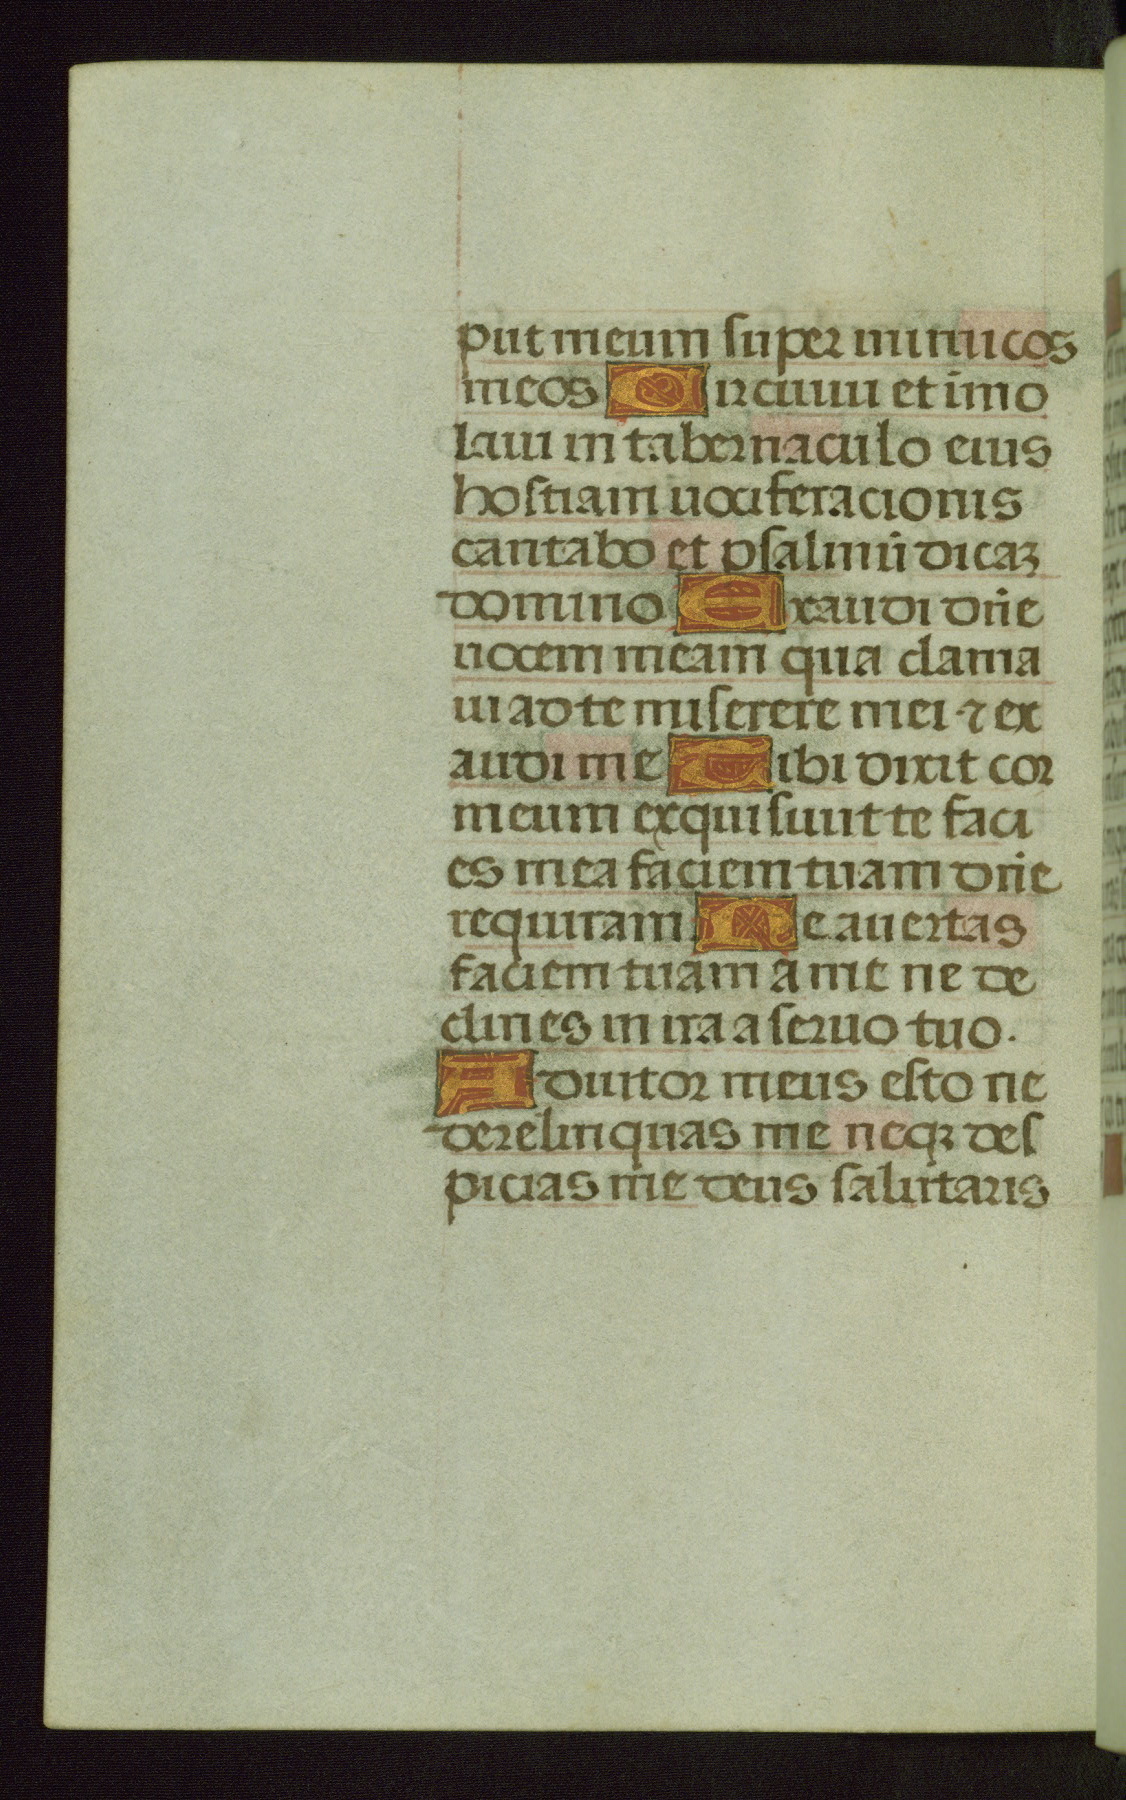 put meum super inimicos
meos Circuiui et imo
laui in tabernaculo eius
hostiam uociferacionis
cantabo et psalmū dicaꝫ
domino Exaudi dn̄e
uocem meam qua clama
ui ad te miserere mei ⁊ ex
audi me Tibi dixit cor
meum exquisiuit te faci
es mea faciem tuam dn̄e
requiram Ne auertas
faciem tuam a me ne de
clines in ira a seruo tuo.
Adiutor meus esto ne
derelinquas me neqꝫ des
picias me deus salutaris